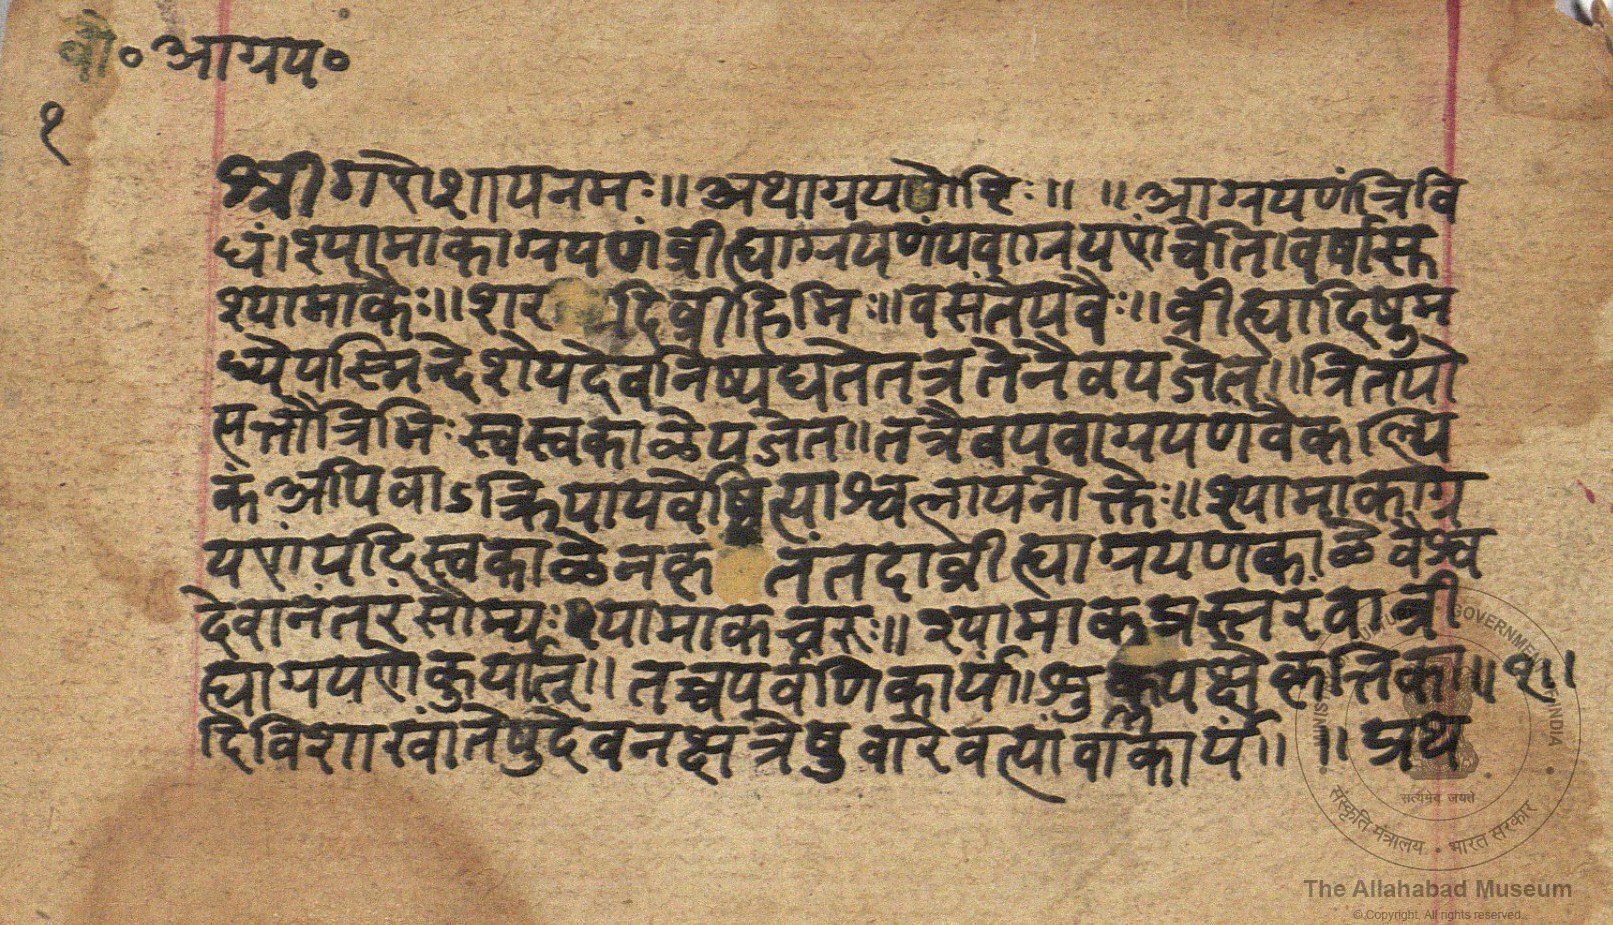 श्री० आग्रय०
१
श्रीगणेशायनमः॥ अथाग्रयणेष्टिः॥ ॥ आग्रयणंत्रिवि
धं। श्यामाकाग्रयणंव्रीह्याग्रयणंयवाग्रयणंचेति। वर्षास्त
श्यामाकैः॥ शरदिव्रीहिभिः॥ वसंतेयवैः॥ व्रीह्यादिषुम
ध्येयस्मिन्देशेयदेवनिष्पद्यतेतत्रतेनैवयजेत्॥ त्रितयो
त्पत्तौत्रिभिः स्वस्वकाळेयजेत॥ तत्रैवयवाग्रयणंवैकल्पि
कं अपिवाऽक्रियायवेष्वित्याश्वलायनोक्तेः॥ श्यामाकाग्र
यणंयदिस्वकाळेनकृ तंतदाव्रीह्याग्रयणकाळेवैश्व
देवानंतरंसौम्यः श्यामाकचरुः॥ श्यामाकप्रस्तरंवाव्री
ह्याग्रयणेकुर्यात्॥ तच्चपर्वणिकार्यं॥ शुक्लपक्षेकृत्तिका॥ १॥
दिविशाखांतेषुदेवनक्षत्रेषुवारेवत्यांवाकार्यं॥ ॥ अथ
MINISTRY OF CULTURE • GOVERNMENT OF INDIA
सत्यमेव जयते
संस्कृति मंत्रालय • भारत सरकार
The Allahabad Museum
© Copyright, All rights reserved.